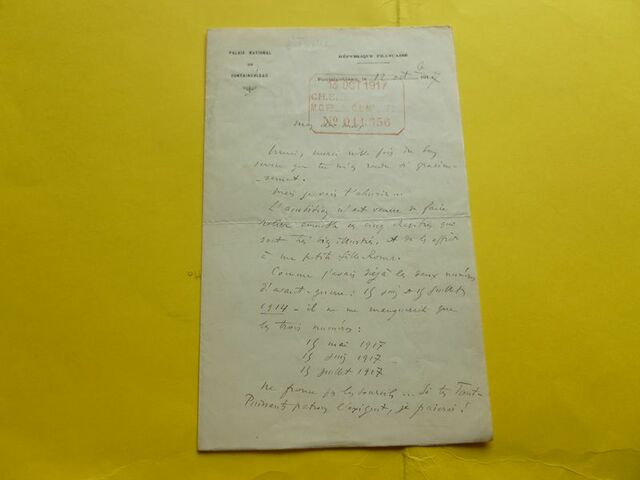 PALAIS NATIONAL
DE
FONTAINEBLEAU
RÉPUBLIQUE FRANÇAISE
Fontainebleau, le 12 oct
15 OCT 1917
No 011656
mon
merci, mille fois du bon
service que tu m'as rendu si gracieu-
-sement.
Mais je vais t'ahurir...
L'ambition m'est venue de faire
relier ensemble ces cinq chapitres qui
sont très bien illustrés, et de les offrir
à ma petite fille
Comme j'avais déjà les deux numéros
d'avant-guerre : 15 juin & 15 juillet
1914 - il ne me manquerait que
les trois numéros :
15 mai 1917
15 juin 1917
15 juillet 1917
ne fronce pas les sourcils ... Si tes Tout-
Puissants patrons l'exigent, je paierai !